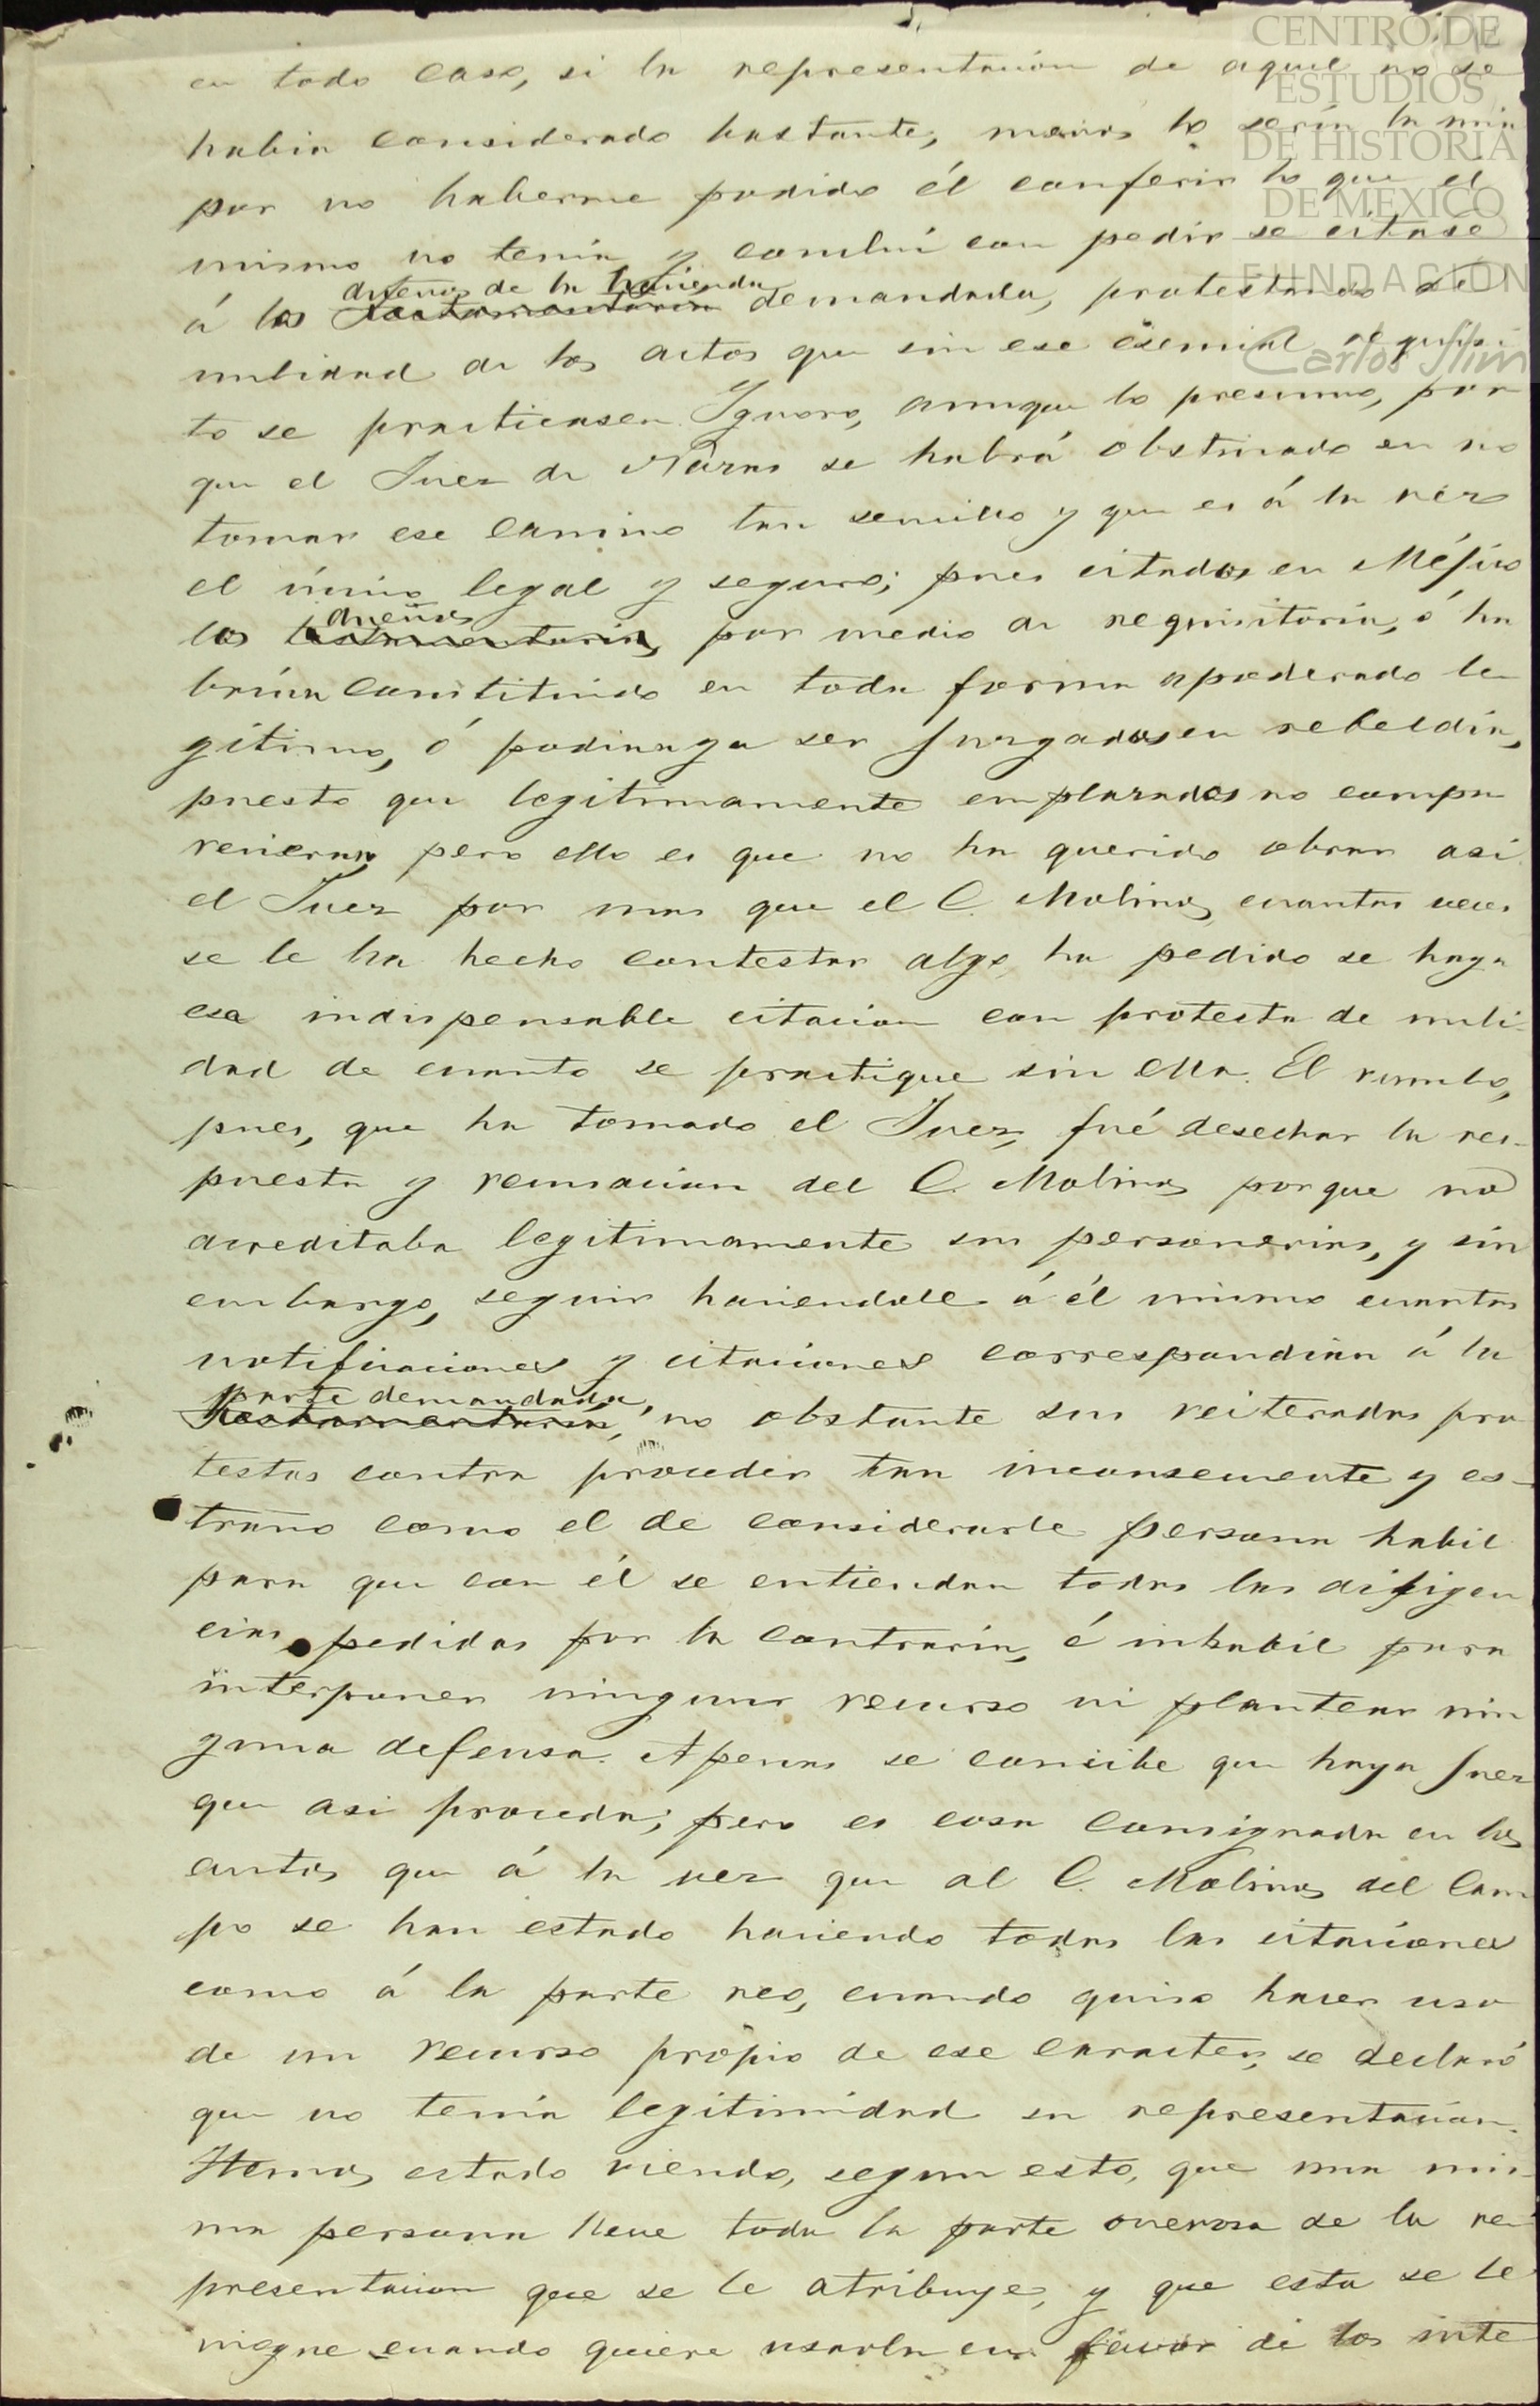 CENTRO DE
ESTUDIOS
DE HISTORIA
DE MEXICO
FUNDACIÓN
Carlos Slim
en todo caso, si la representacion de aquel no se
habia considerado bastante, menos lo sería la mia
por no haberme podido él conferir lo que el
mismo no tenía y concluí con pedir se citase
dueños de la hacienda
á los testamentaria demandada, protestando de
nulidad de los actos que sin ese esencial requisi
to se practicasen. Ygnoro, aunque lo presumo, por
que el Juez de Nazas se habrá obstinado en no
tomar ese camino tan sencillo y que es á la vez
el único legal y seguro; pues citados en Méjico
dueños
los testamentaria, por medio de requisitoria, ó ha
brían constituido en toda forma apoderado le
gitimo, ó podian ya ser juzgados en rebeldía,
puesto que legitimamente emplazados no compa
recieran, pero ello es que no ha querido obrar asi
el Juez por mas que el C. Molinos, cuantas veces
se le ha hecho contestar algo, ha pedido se haga
esa indispensable citacion con protesta de nuli-
dad de cuanto se practique sin ella. El rumbo,
pues, que ha tomado el Juez, fué desechar la res-
puesta y recusacion del C. Molinos porque no
acreditaba legitimamente su personería, y sin
embargo, seguir haciendole á él mismo cuantas
notificaciones y citaciones correspondian á la
parte demandada,
testamentaria, no obstante sus reiteradas pro
testas contra proceder tan inconsecuente y es-
traño como el de considerarle persona habil
para que con él se entiendan todas las diligen
cias pedidas por la contraria, é inhabil para
interponer ningun recurso ni plantear nin
guna defensa. Apenas se concibe que haya Juez
que asi proceda; pero es cosa consignada en los
autos que á la vez que al C. Molinos del Cam
po se han estado haciendo todas las citaciones
como á la parte reo, cuando quiso hacer uso
de un recurso propio de ese caracter, se declaró
que no tenía legitimidad su representacion.
Hemos estado viendo, segun esto, que una mis-
ma persona lleve toda la parte onerosa de la re-
presentacion que se le atribuye, y que esta se le
niegue cuando quiere usarla en favor de los inte